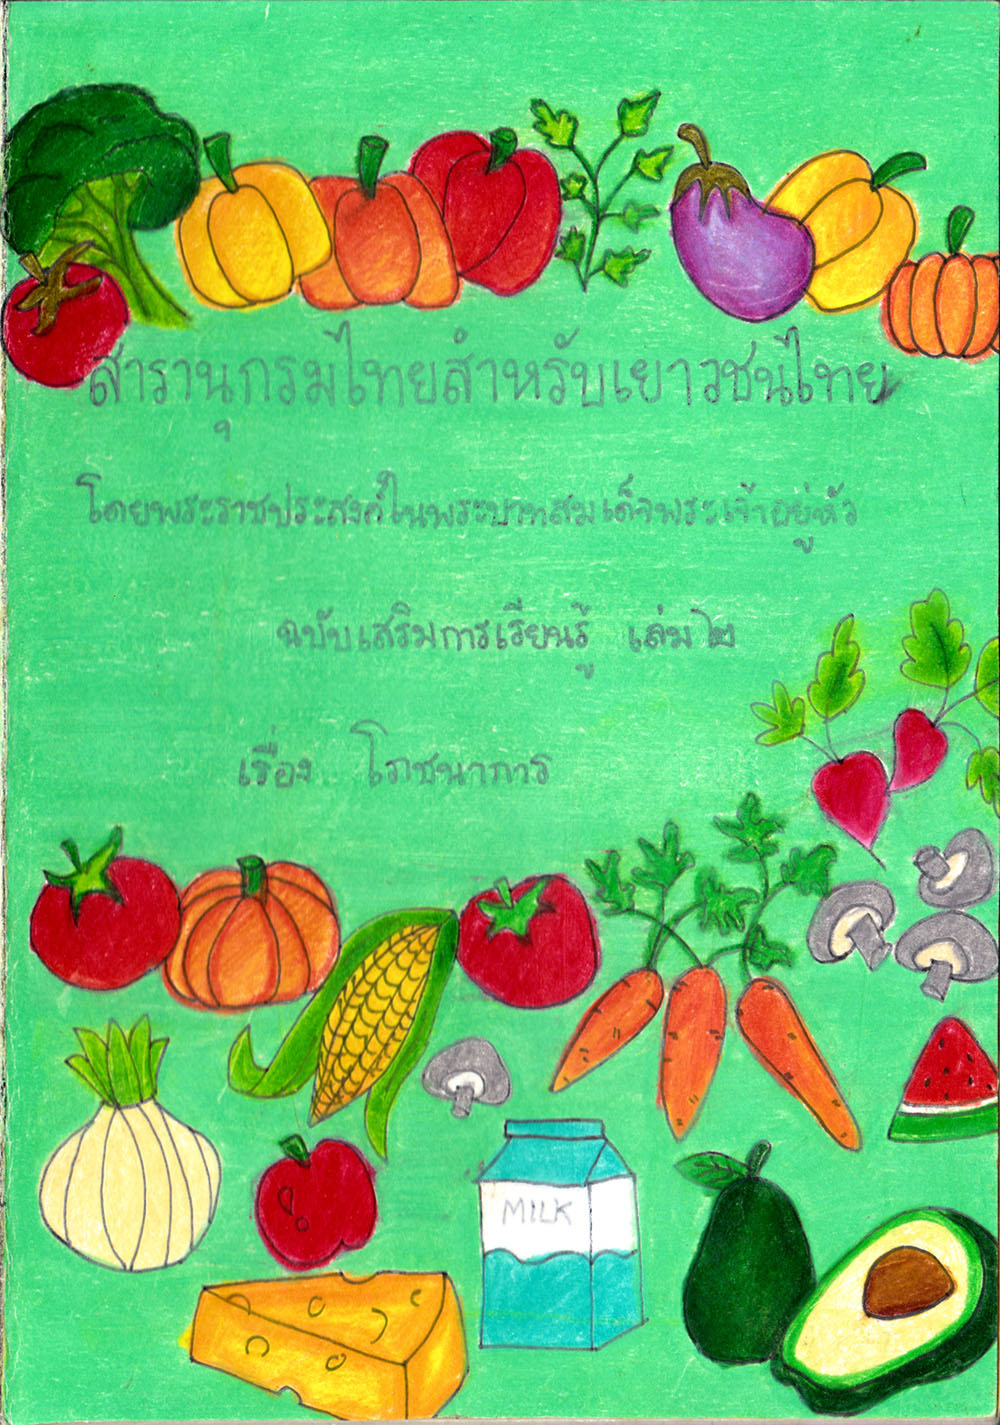 สารานุกรมไทยสำหรับเยาวชนไทย
โดยพระราชประสงค์ในพระบาทสมเด็จพระเจ้าอยู่หัว
ฉบับเสริมการเรียนรู้ เล่ม ๒
เรื่อง โภชนาการ
MILK